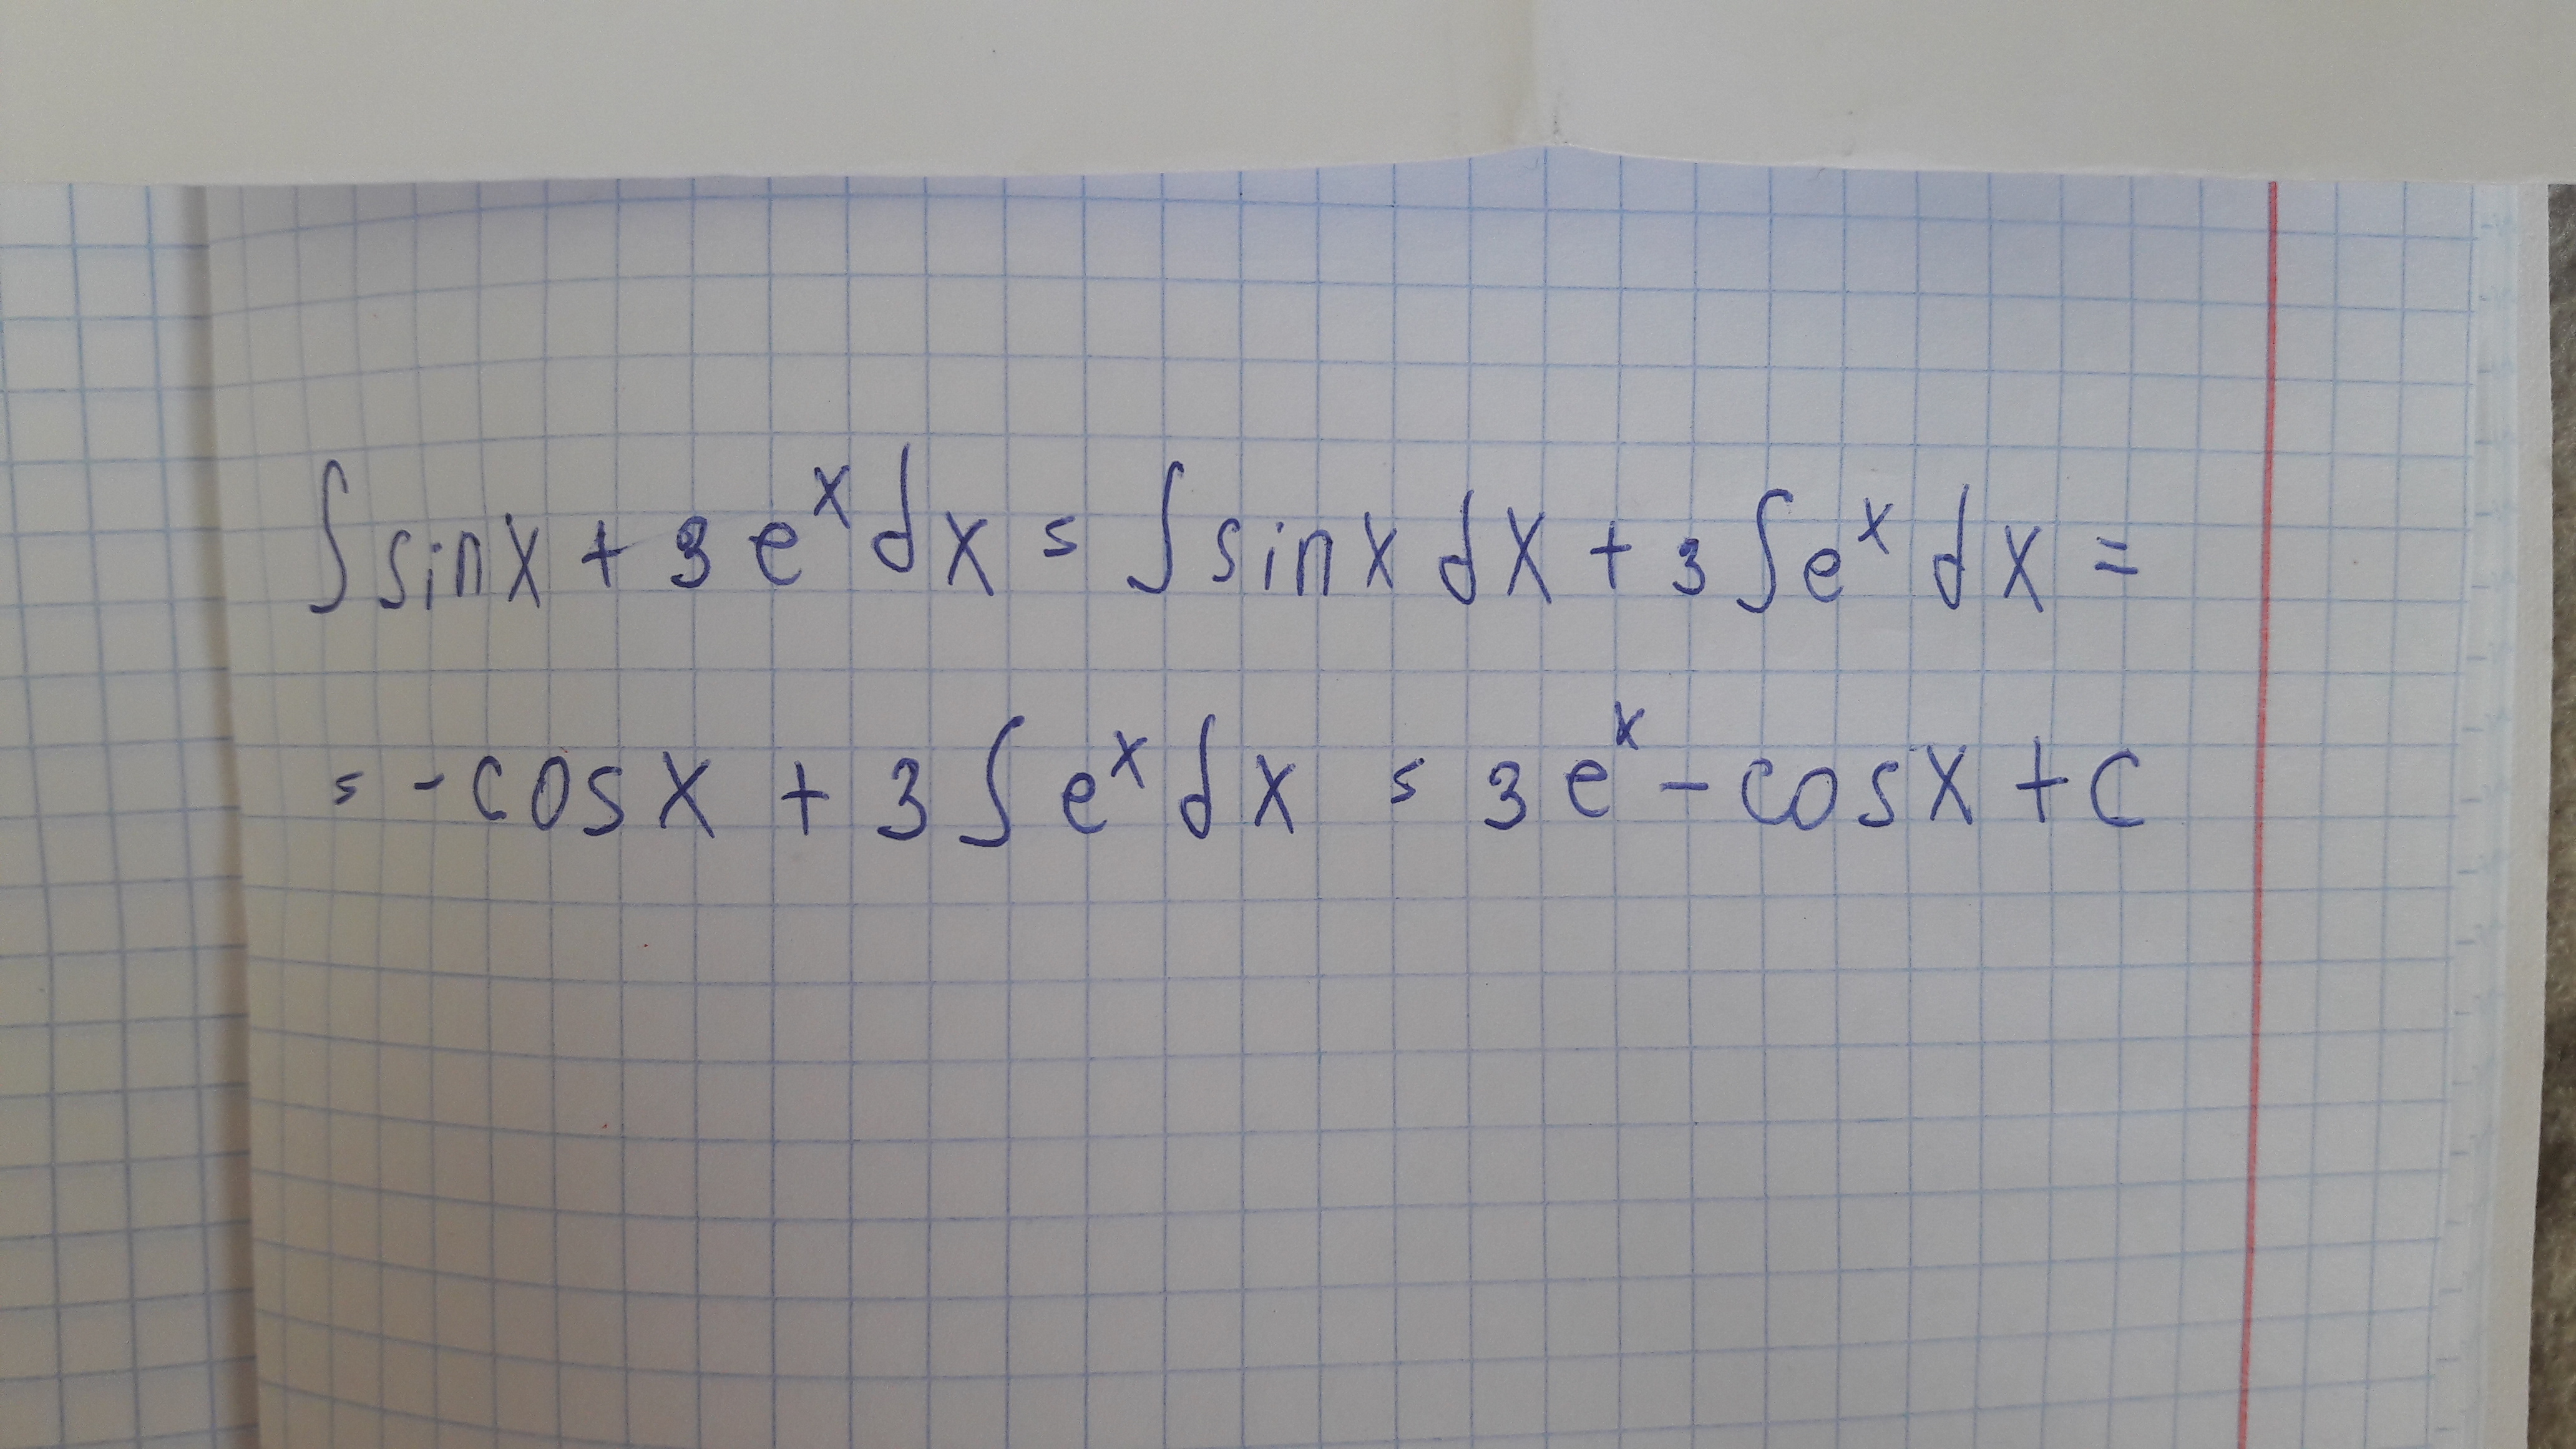 ∫ sin x + 3 e^x dx = ∫ sin x dx + 3 ∫ e^x dx =
= - cos x + 3 ∫ e^x dx = 3 e^x - cos x + C